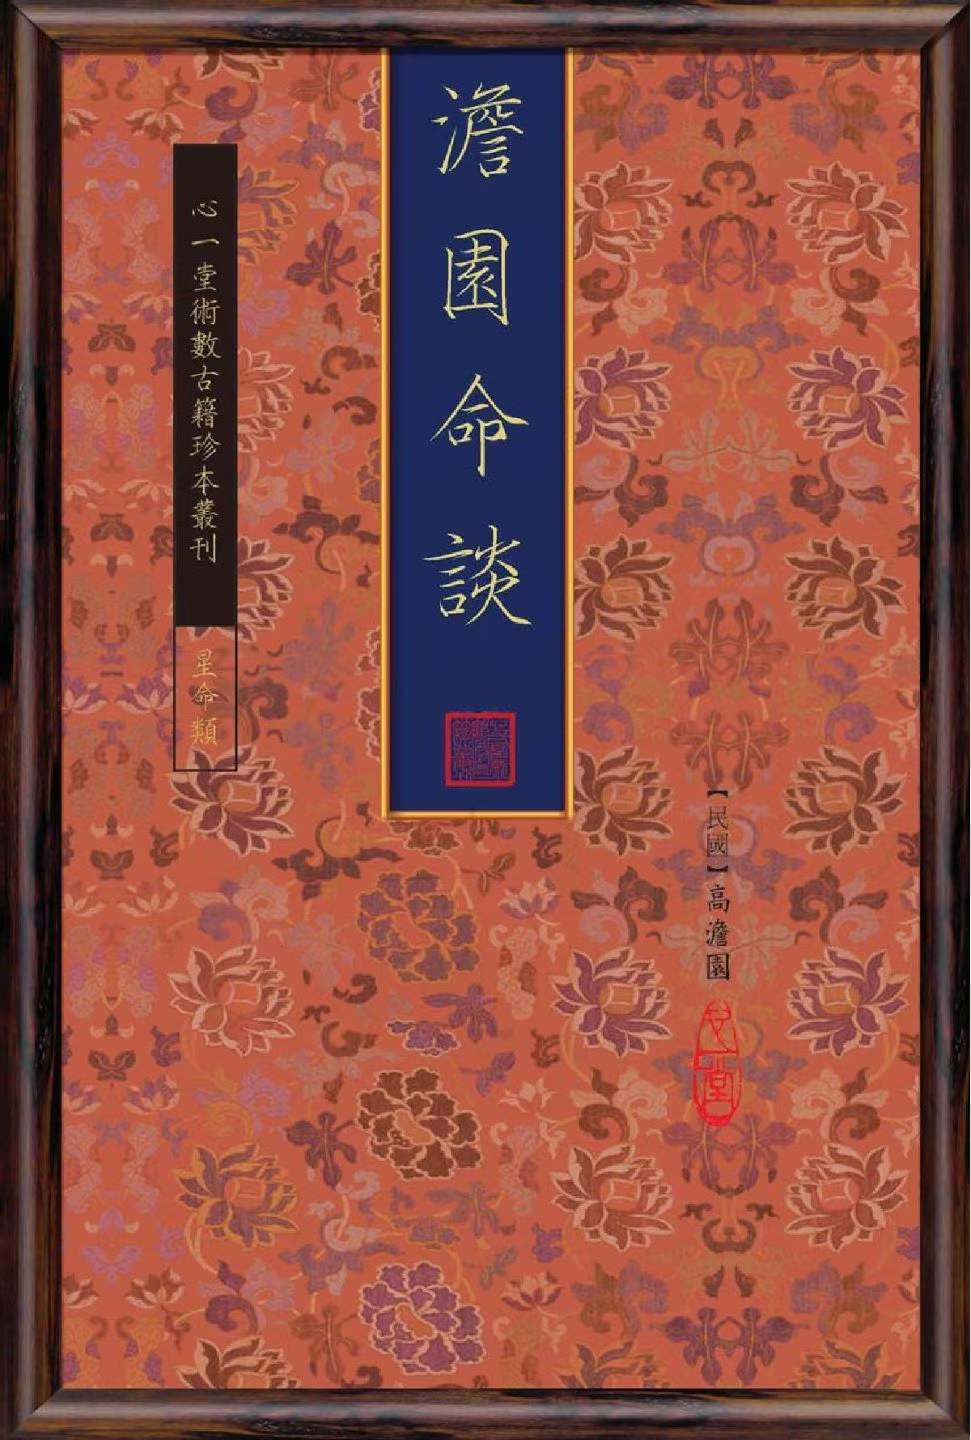 澹園命談
【民國】高澹園
心一堂
心一堂術數古籍珍本叢刊
星命類